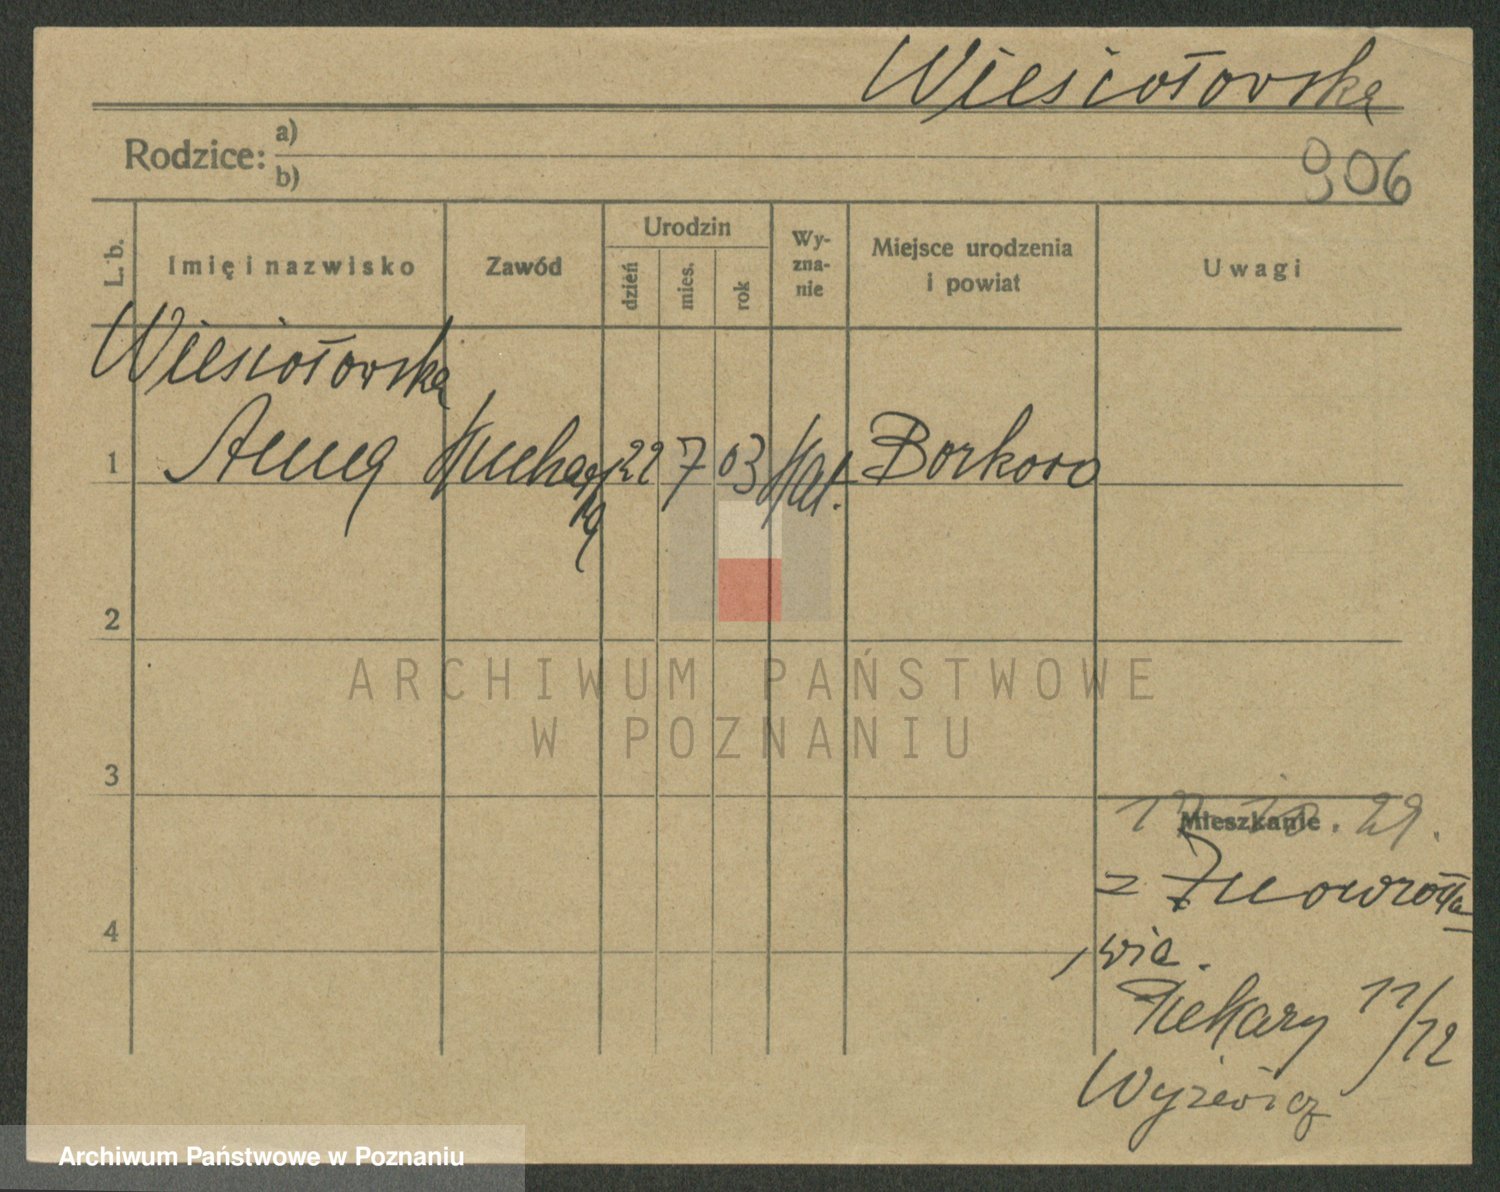 Wiesiołowska
Rodzice: a)
b)
906
L. b.
Imię i nazwisko
Zawód
Urodzin
dzień
mies.
rok
Wy-
zna-
nie
Miejsce urodzenia
i powiat
Uwagi
Wiesiołowska
1 Anna Kucharka 22 7 03 Kat. Borkowo
2
ARCHIWUM PAŃSTWOWE
W POZNANIU
3
Mieszkanie
29.
z Inowrocła
wia.
4
Piekary 11/12
Archiwum Państwowe w Poznaniu